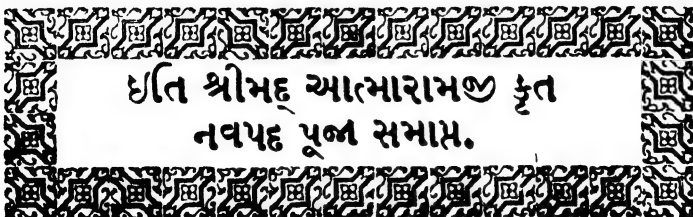 ઇતિ શ્રીમદ્ આત્મારામજી કૃત
નવપદ પૂજા સમાપ્ત.